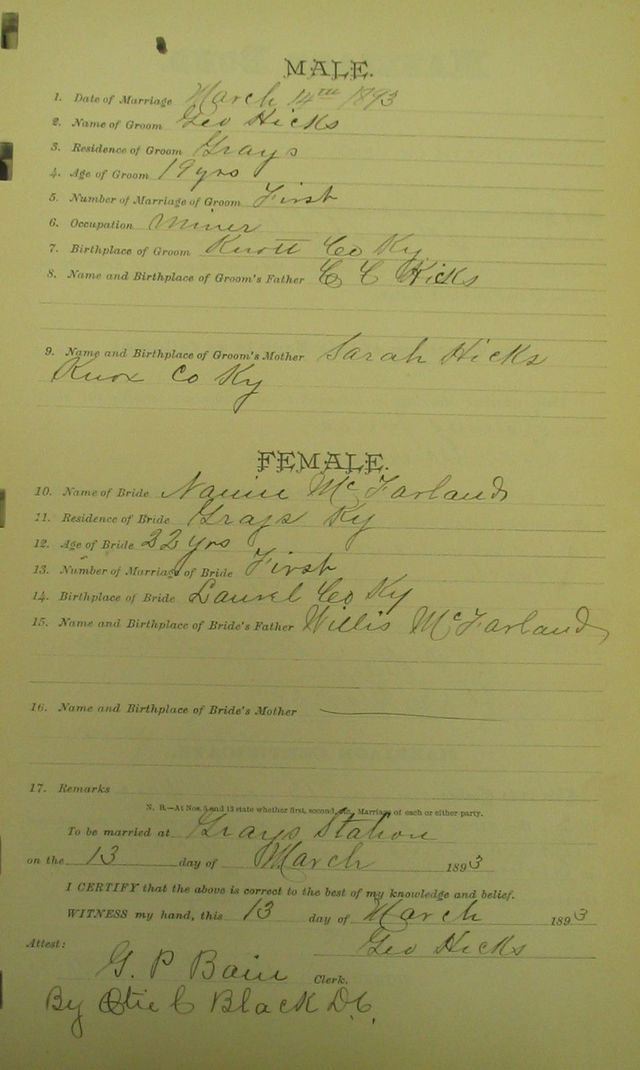 MALE.
1. Date of Marriage March 14TH 1893
2. Name of Groom Geo Hicks
3. Residence of Groom Grays
4. Age of Groom 19 yrs
5. Number of Marriage of Groom First
6. Occupation Miner
7. Birthplace of Groom Knott Co Ky
8. Name and Birthplace of Groom's Father C C Hicks
9. Name and Birthplace of Groom's Mother Sarah Hicks
Knox Co Ky
FEMALE.
10. Name of Bride Nannie McFarland
11. Residence of Bride Grays Ky
12. Age of Bride 22 yrs
13. Number of Marriage of Bride First
14. Birthplace of Bride Laurel Co Ky
15. Name and Birthplace of Bride's Father Willis McFarland
16. Name and Birthplace of Bride's Mother
17. Remarks
N. B.—At Nos. 5 and 13 state whether first, second, etc., Marriage of each or either party.
To be married at Grays Station
on the 13 day of March 1893
I CERTIFY that the above is correct to the best of my knowledge and belief.
WITNESS my hand, this 13 day of March 1893
Geo Hicks
Attest:
G. P Bain Clerk.
By C Black D.C.